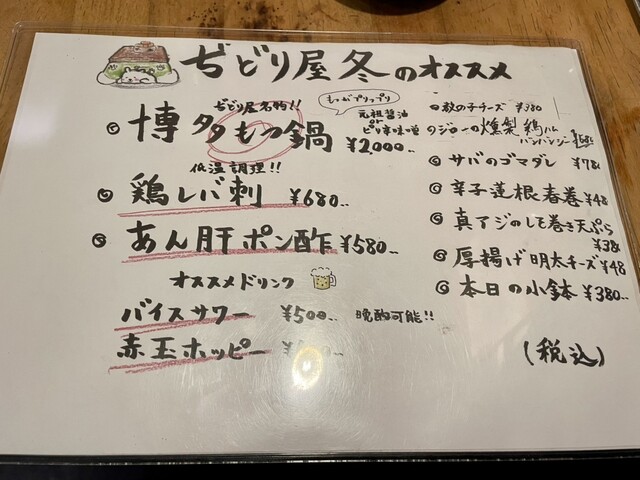 ぢどり屋冬のオススメ
ぢどり屋名物!!
もつがプリップリ
博多もつ鍋
元祖醤油
or
ピリ辛味噌
¥2,000..
低温調理!!
鶏レバ刺 ¥680..
あん肝ポン酢 ¥580..
オススメドリンク
バイスサワー ¥500.. 晩酌可能!!
赤玉ホッピー
数の子チーズ ¥380
ジローの燻製鶏ハム
バンバンジー
サバのゴマダレ ¥78
辛子蓮根春巻 ¥48
真アジのしそ巻き天ぷら
¥38
厚揚げ明太チーズ ¥48
本日の小鉢 ¥380..
(税込)